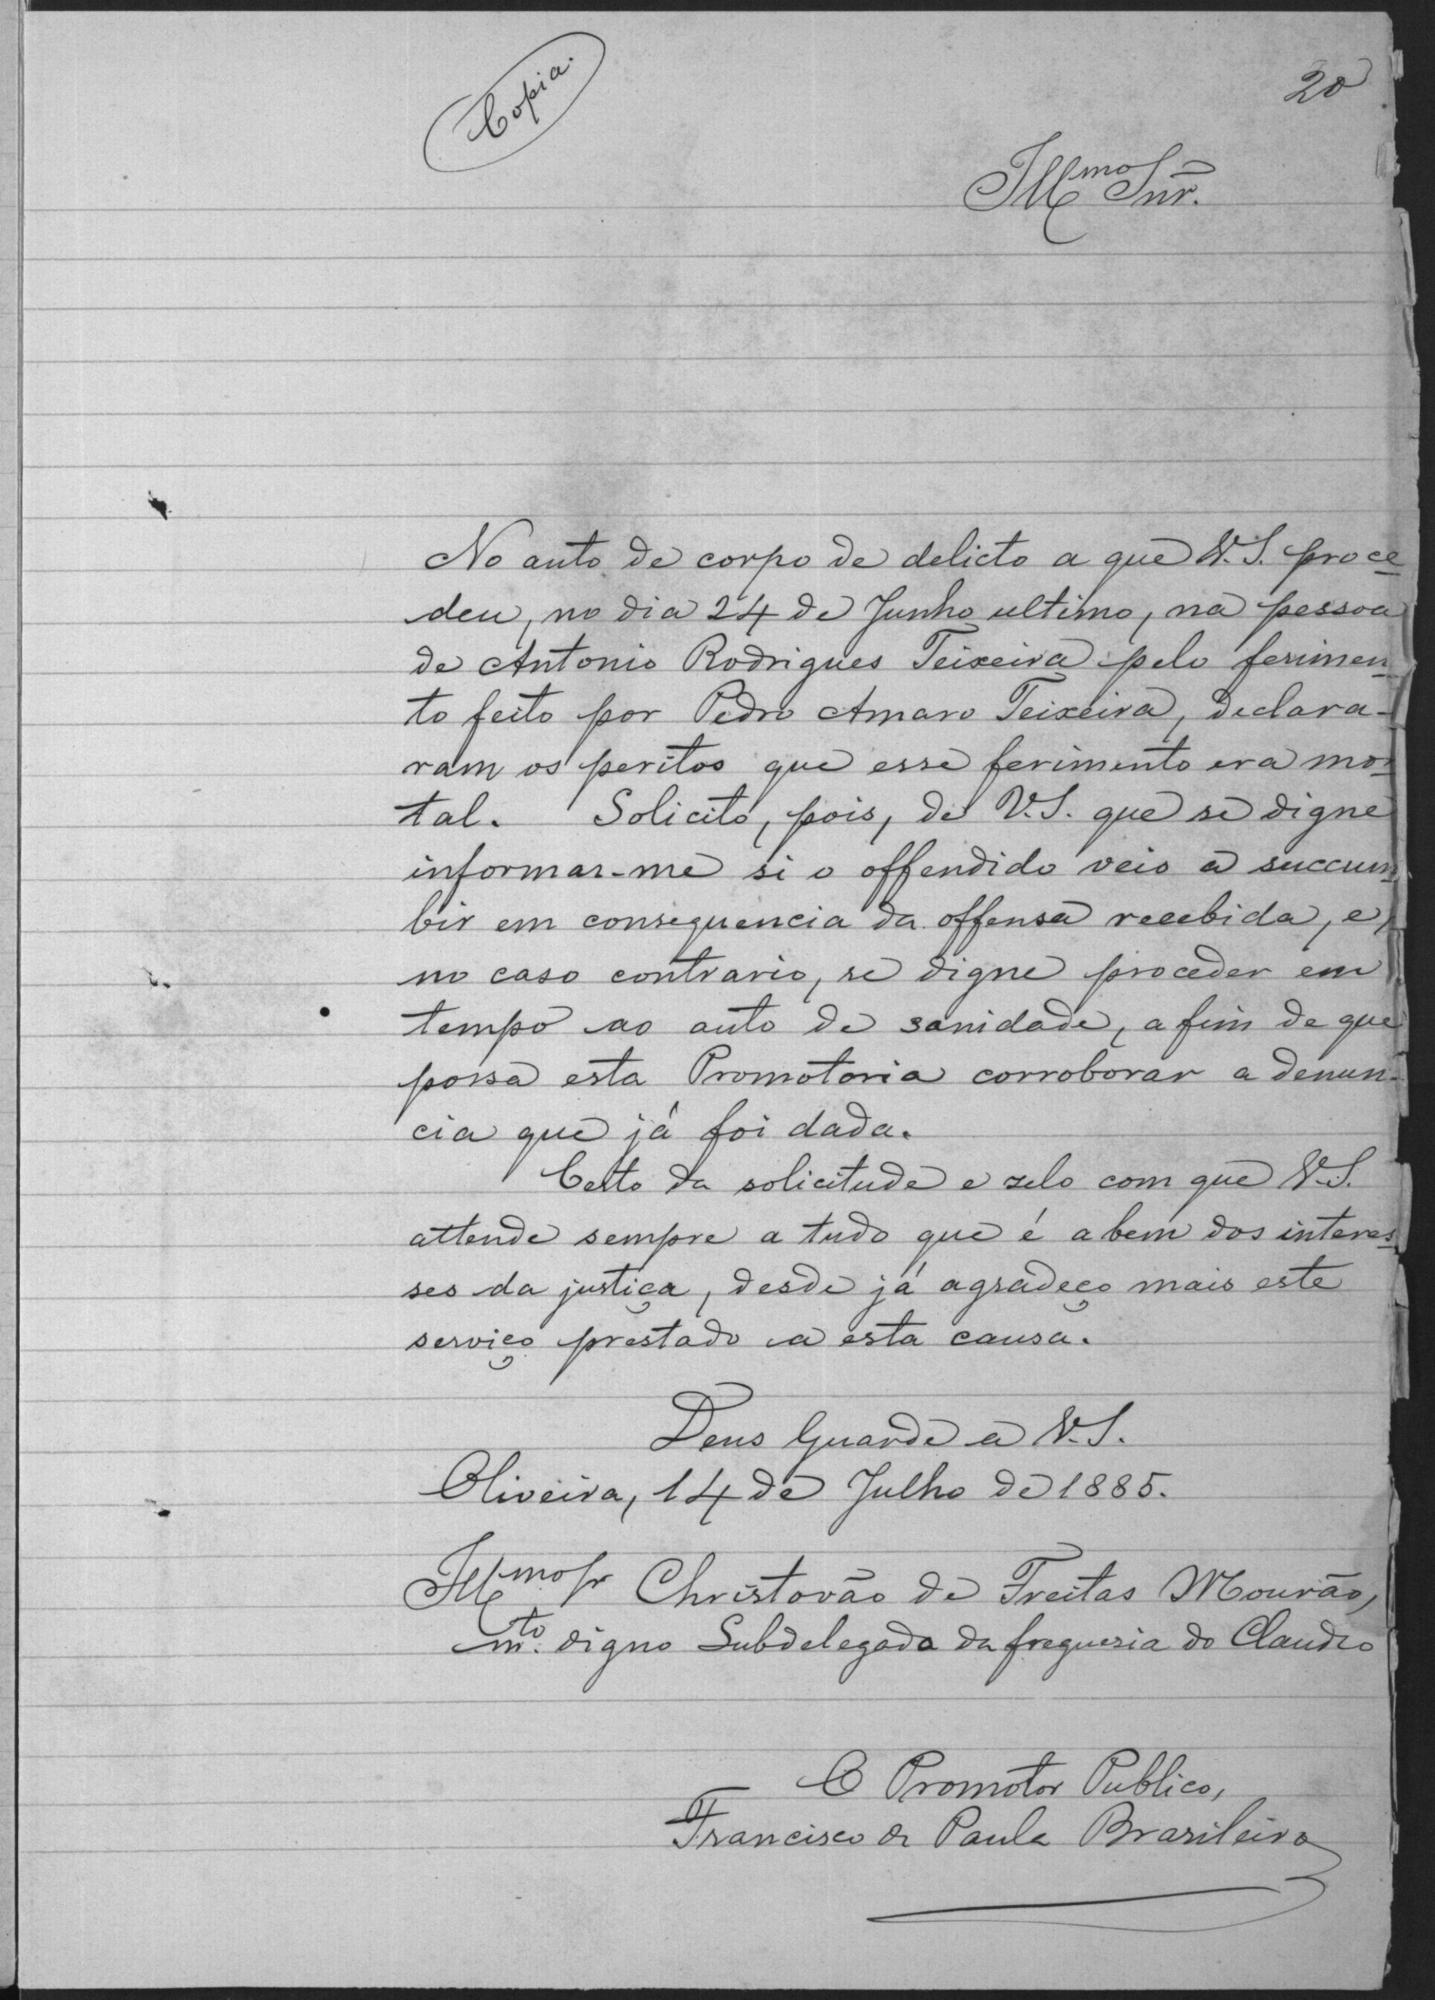 Copia.
20
Illmo Snr.
No auto de corpo de delicto a que V.S. proce-
deu, no dia 24 de Junho ultimo, na pessoa
de Antonio Rodrigues Teixeira pelo ferimen-
to feito por Pedro Amaro Teixeira, declara-
ram os peritos que esse ferimento era mor-
tal. Solicito, pois, de V.S. que se digne
informar-me si o offendido veio a succum-
bir em consequencia da offensa recebida, e,
no caso contrario, se digne proceder em
tempo ao auto de sanidade, a fim de que
possa esta Promotoria corroborar a denun-
cia que já foi dada.
Certo da solicitude e zelo com que V.S.
attende sempre a tudo que é a bem dos interes-
ses da justiça, desde já agradeço mais este
serviço prestado a esta causa.
Deus Guarde a V.S.
Oliveira, 14 de Julho de 1885.
Illmo Sr Christovão de Freitas Mourão,
mto. digno Subdelegado da freguesia do Claudio
O Promotor Publico,
Francisco de Paula Brasileiro